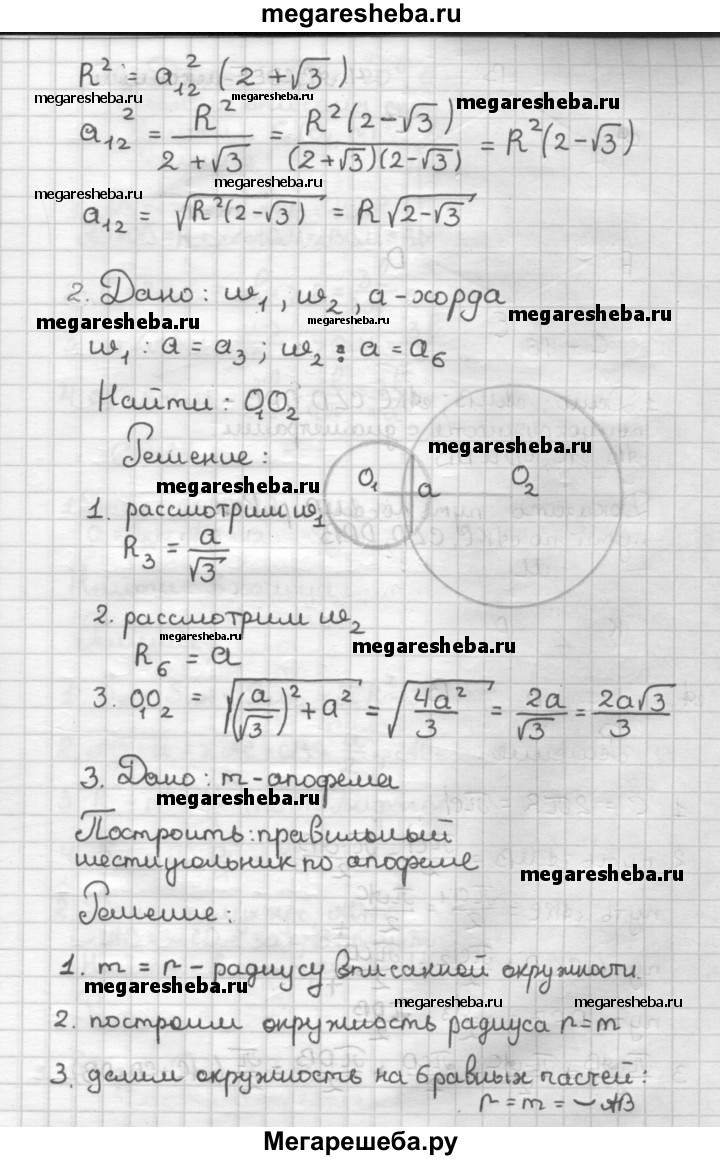 megaresheba.ru
R² = a₁₂² (2 + √3)
megaresheba.ru megaresheba.ru megaresheba.ru
a₁₂² = R² / (2 + √3) = R²(2 - √3) / ((2 + √3)(2 - √3)) = R²(2 - √3)
megaresheba.ru
megaresheba.ru
a₁₂ = √(R²(2 - √3)) = R √(2 - √3)
2. Дано: w₁, w₂, a - хорда
megaresheba.ru megaresheba.ru megaresheba.ru
w₁ : a = a₃ ; w₂ : a = a₆
Найти: O₁O₂
megaresheba.ru
Решение:
O₁ a O₂
megaresheba.ru
1. рассмотрим w₁
R₃ = a / √3
2. рассмотрим w₂
megaresheba.ru megaresheba.ru
R₆ = a
3. O₁O₂ = √((a/√3)² + a²) = √(4a²/3) = 2a/√3 = 2a√3/3
3. Дано: m - апофема
megaresheba.ru
Построить: правильный
шестиугольник по апофеме
megaresheba.ru
Решение:
1. m = r - радиусу вписанной окружности.
megaresheba.ru megaresheba.ru megaresheba.ru
2. построим окружность радиуса r = m
3. делим окружность на 6 равных частей:
r = m = ◡AB
Мегарешеба.ру